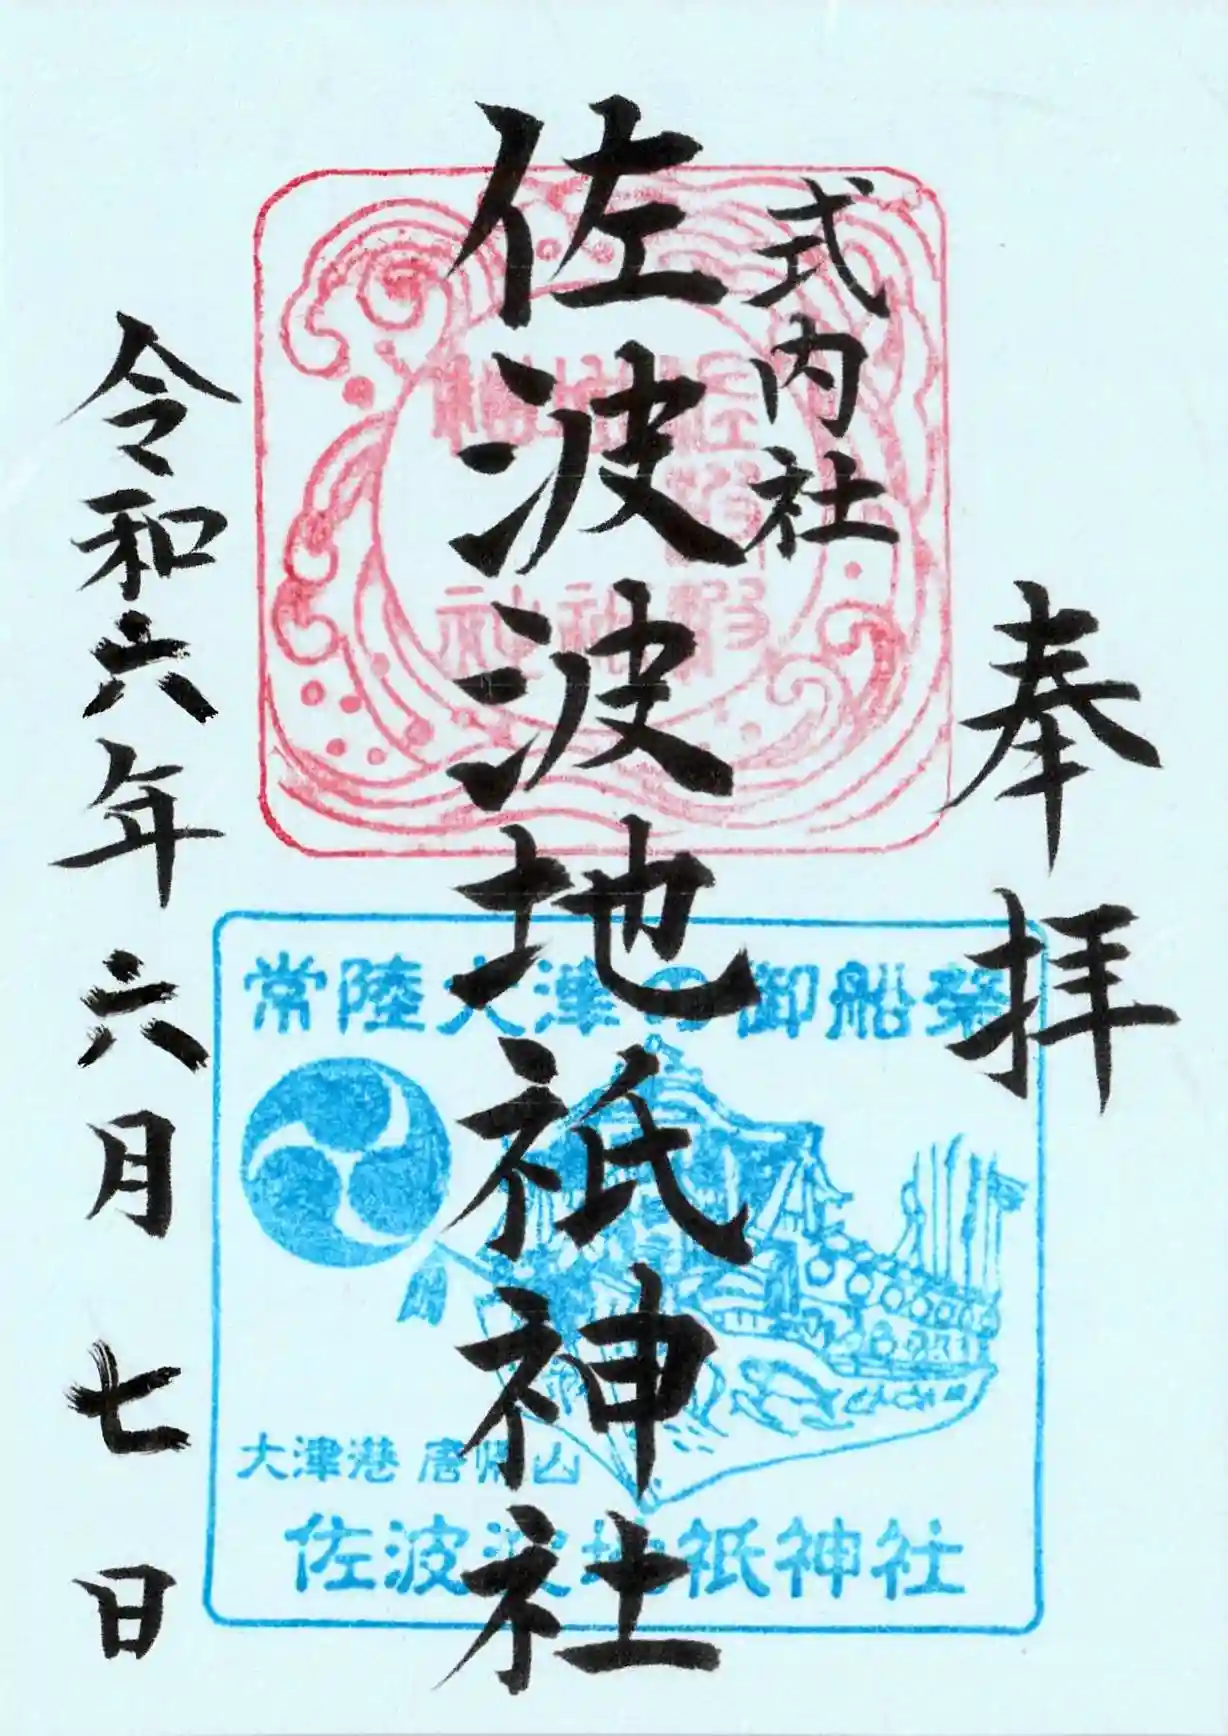 奉拝
式内社
佐波波地祇神社
令和六年六月七日
常陸大津の御船祭
大津港 唐帰山
佐波波地祇神社